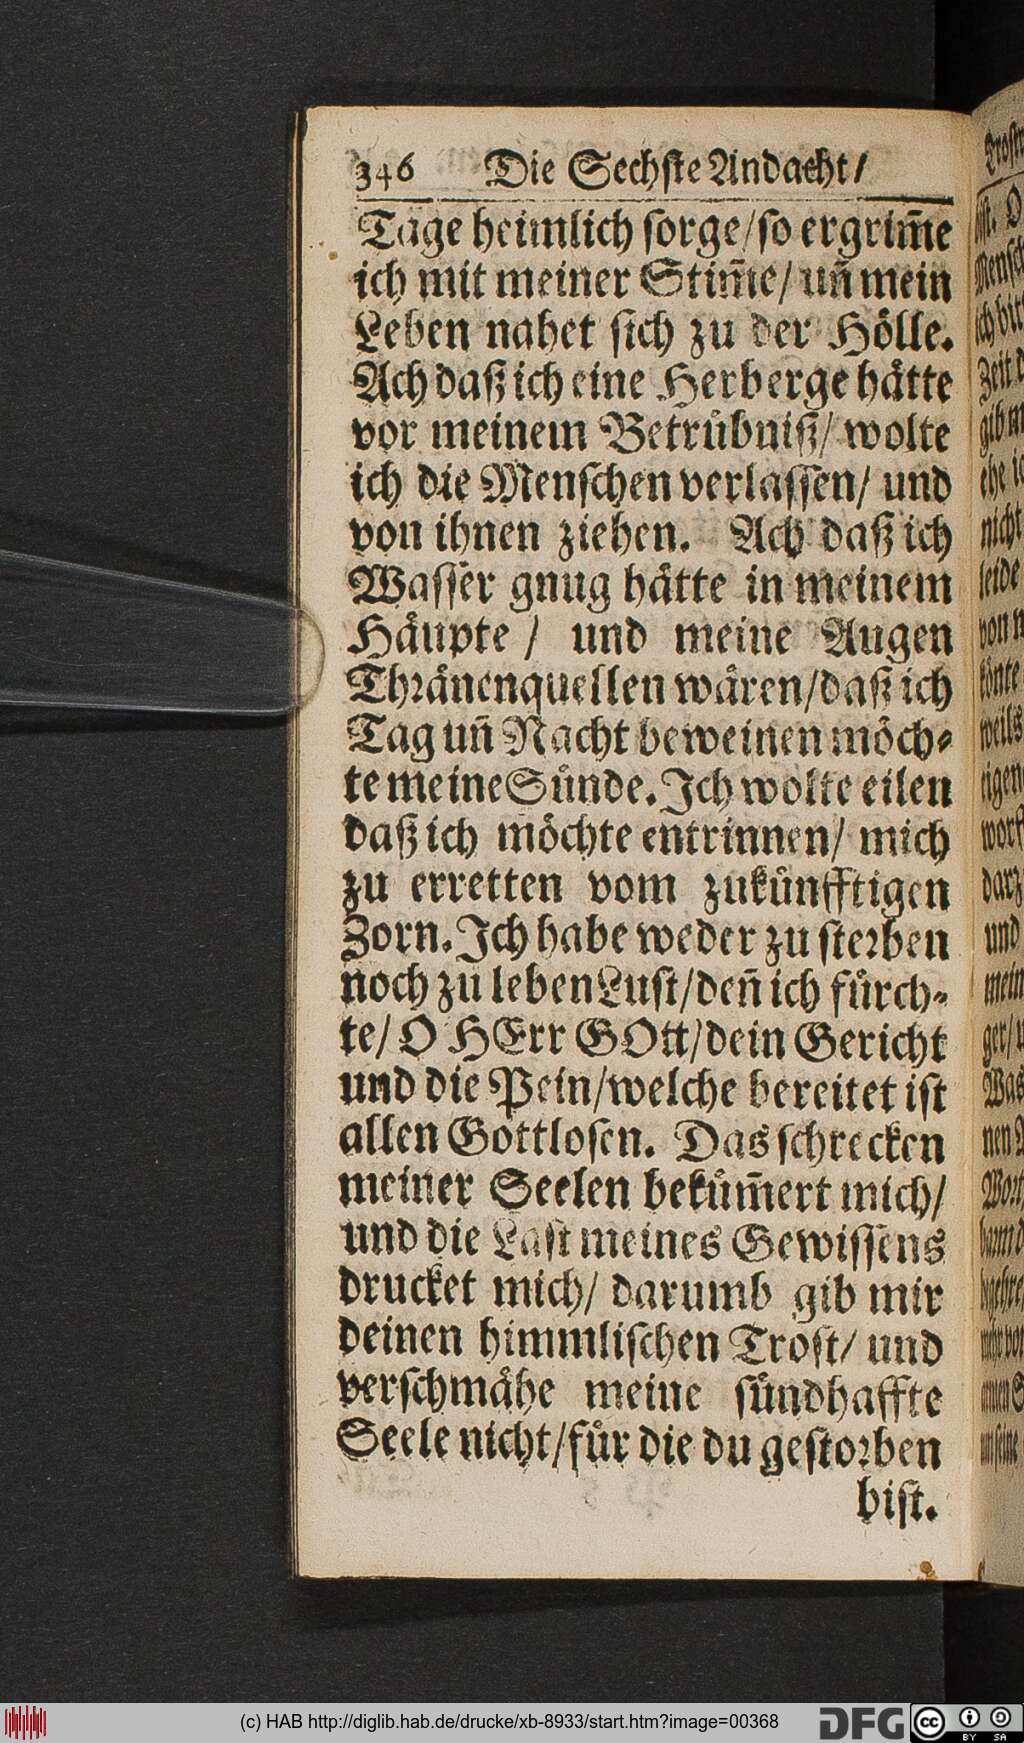 346 Die Sechste Andacht /
Tage heimlich sorge / so ergrim̃e
ich mit meiner Stim̃e / uñ mein
Leben nahet sich zu der Hölle.
Ach daß ich eine Herberge hätte
vor meinem Betrübniß / wolte
ich die Menschen verlassen / und
von ihnen ziehen. Ach daß ich
Wasser gnug hätte in meinem
Häupte / und meine Augen
Thränenquellen wären / daß ich
Tag uñ Nacht beweinen möch⸗
te meine Sünde. Ich wolte eilen
daß ich möchte entrinnen / mich
zu erretten vom zukünfftigen
Zorn. Ich habe weder zu sterben
noch zu leben Lust / deñ ich fürch⸗
te / O HErr GOtt / dein Gericht
und die Pein / welche bereitet ist
allen Gottlosen. Das schrecken
meiner Seelen beküm̃ert mich /
und die Last meines Gewissens
drucket mich / darumb gib mir
deinen himmlischen Trost / und
verschmähe meine sündhaffte
Seele nicht / für die du gestorben
bist.
(c) HAB http://diglib.hab.de/drucke/xb-8933/start.htm?image=00368
DFG
cc BY SA